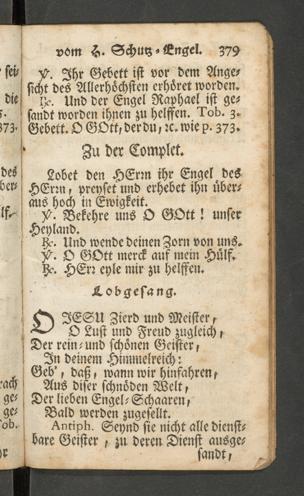 vom H. Schutz-Engel. 379
℣. Ihr Gebett ist vor dem Ange-
sicht des Allerhöchsten erhöret worden.
℟. Und der Engel Raphael ist ge-
sandt worden ihnen zu helffen. Tob. 3.
Gebett. O GOtt, der du, ꝛc. wie p. 373.
Zu der Complet.
Lobet den HErrn ihr Engel des
HErrn, preyset und erhebet ihn über-
aus hoch in Ewigkeit.
℣. Bekehre uns O GOtt! unser
Heyland.
℟. Und wende deinen Zorn von uns.
℣. O GOtt merck auf mein Hülf.
℟. HErr eyle mir zu helffen.
Lobgesang.
O JESU Zierd und Meister,
O Lust und Freud zugleich,
Der rein- und schönen Geister,
In deinem Himmelreich:
Geb', daß, wann wir hinfahren,
Aus diser schnöden Welt,
Der lieben Engel-Schaaren,
Bald werden zugesellt.
Antiph. Seynd sie nicht alle dienst-
bare Geister, zu deren Dienst ausge-
sandt,